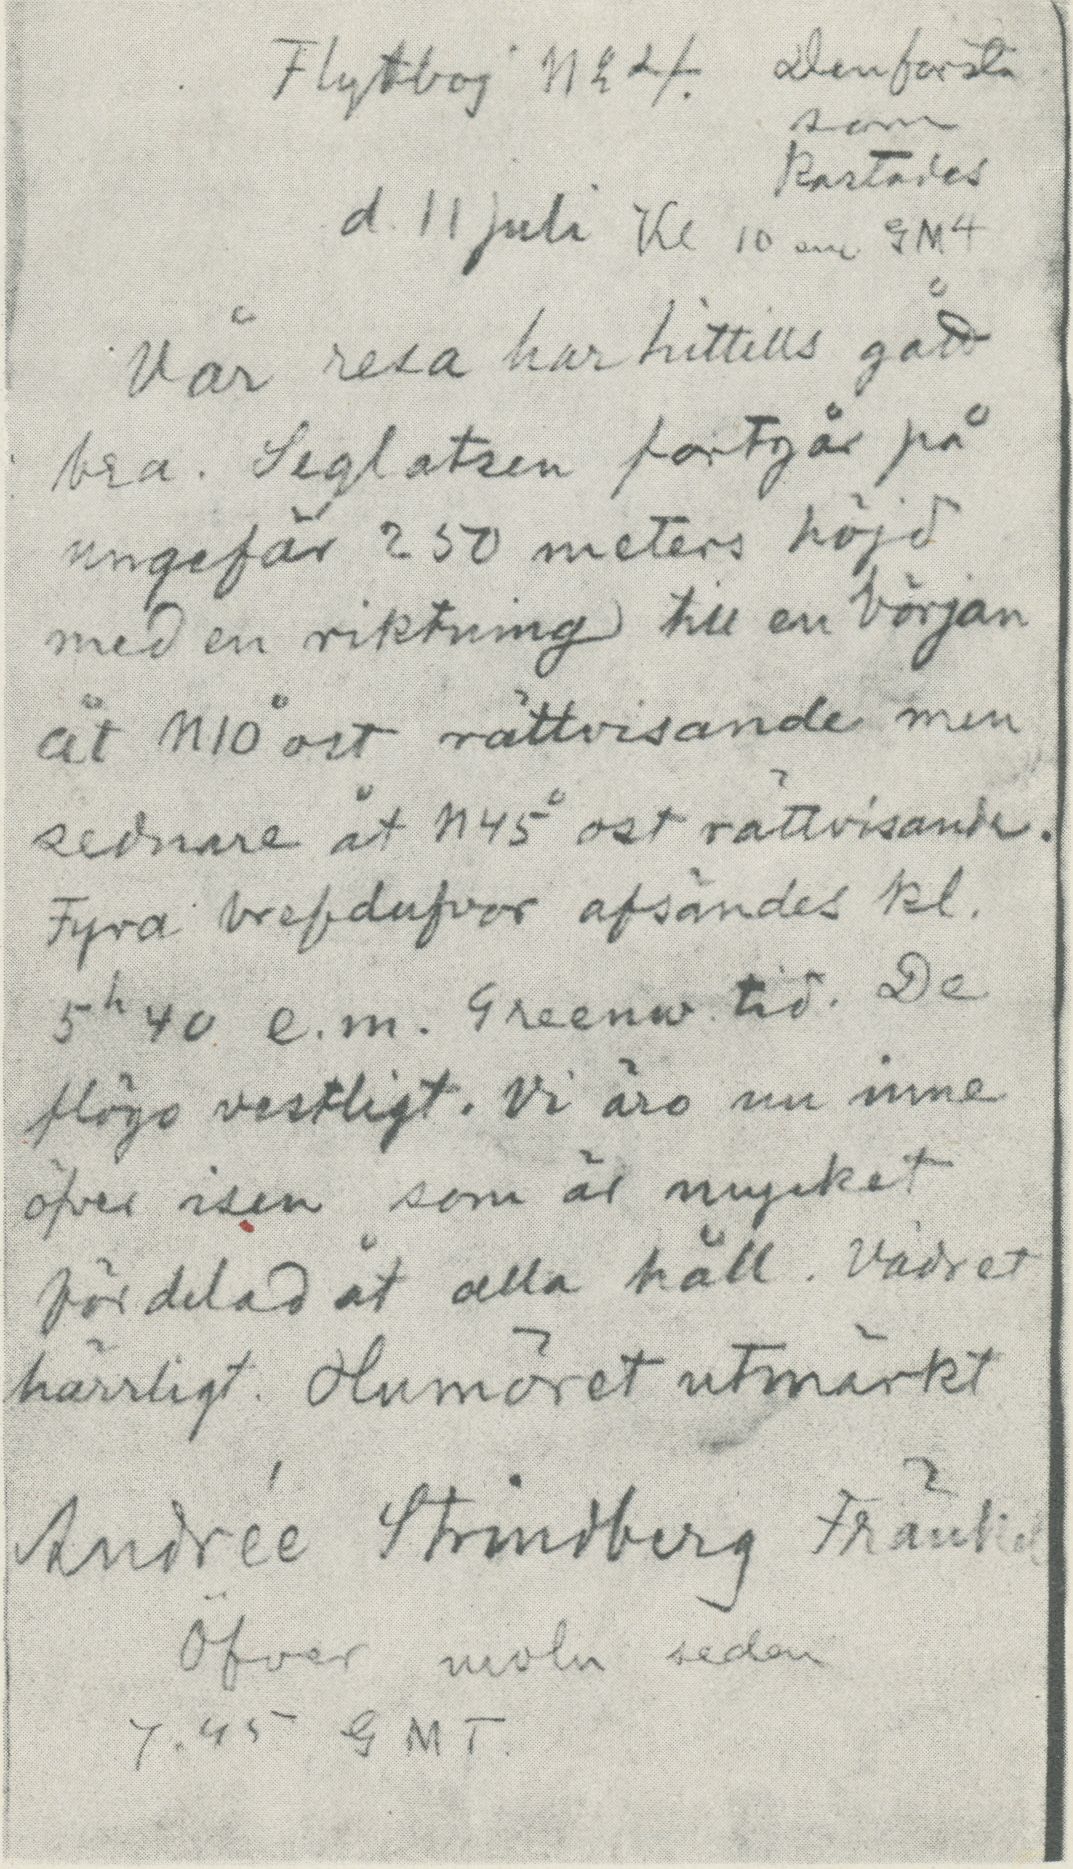 Flytboj No 4. Den första
som
kastades
d. 11 juli Kl 10 em GMT
Vår resa har hittills gått
bra. Seglatsen fortgår på
ungefär 250 meters höjd
med en riktning till en början
åt N10° ost rättvisande men
sednare åt N45° ost rättvisande.
Fyra brefdufvor afsändes kl.
5h 40 e.m. Greenw. tid. De
flögo vestligt. Vi äro nu inne
öfver isen som är mycket
fördelad åt alla håll. Vädret
härrligt. Humöret utmärkt
Andrée Strindberg Frænkel
Öfver moln sedan
7.45 GMT.